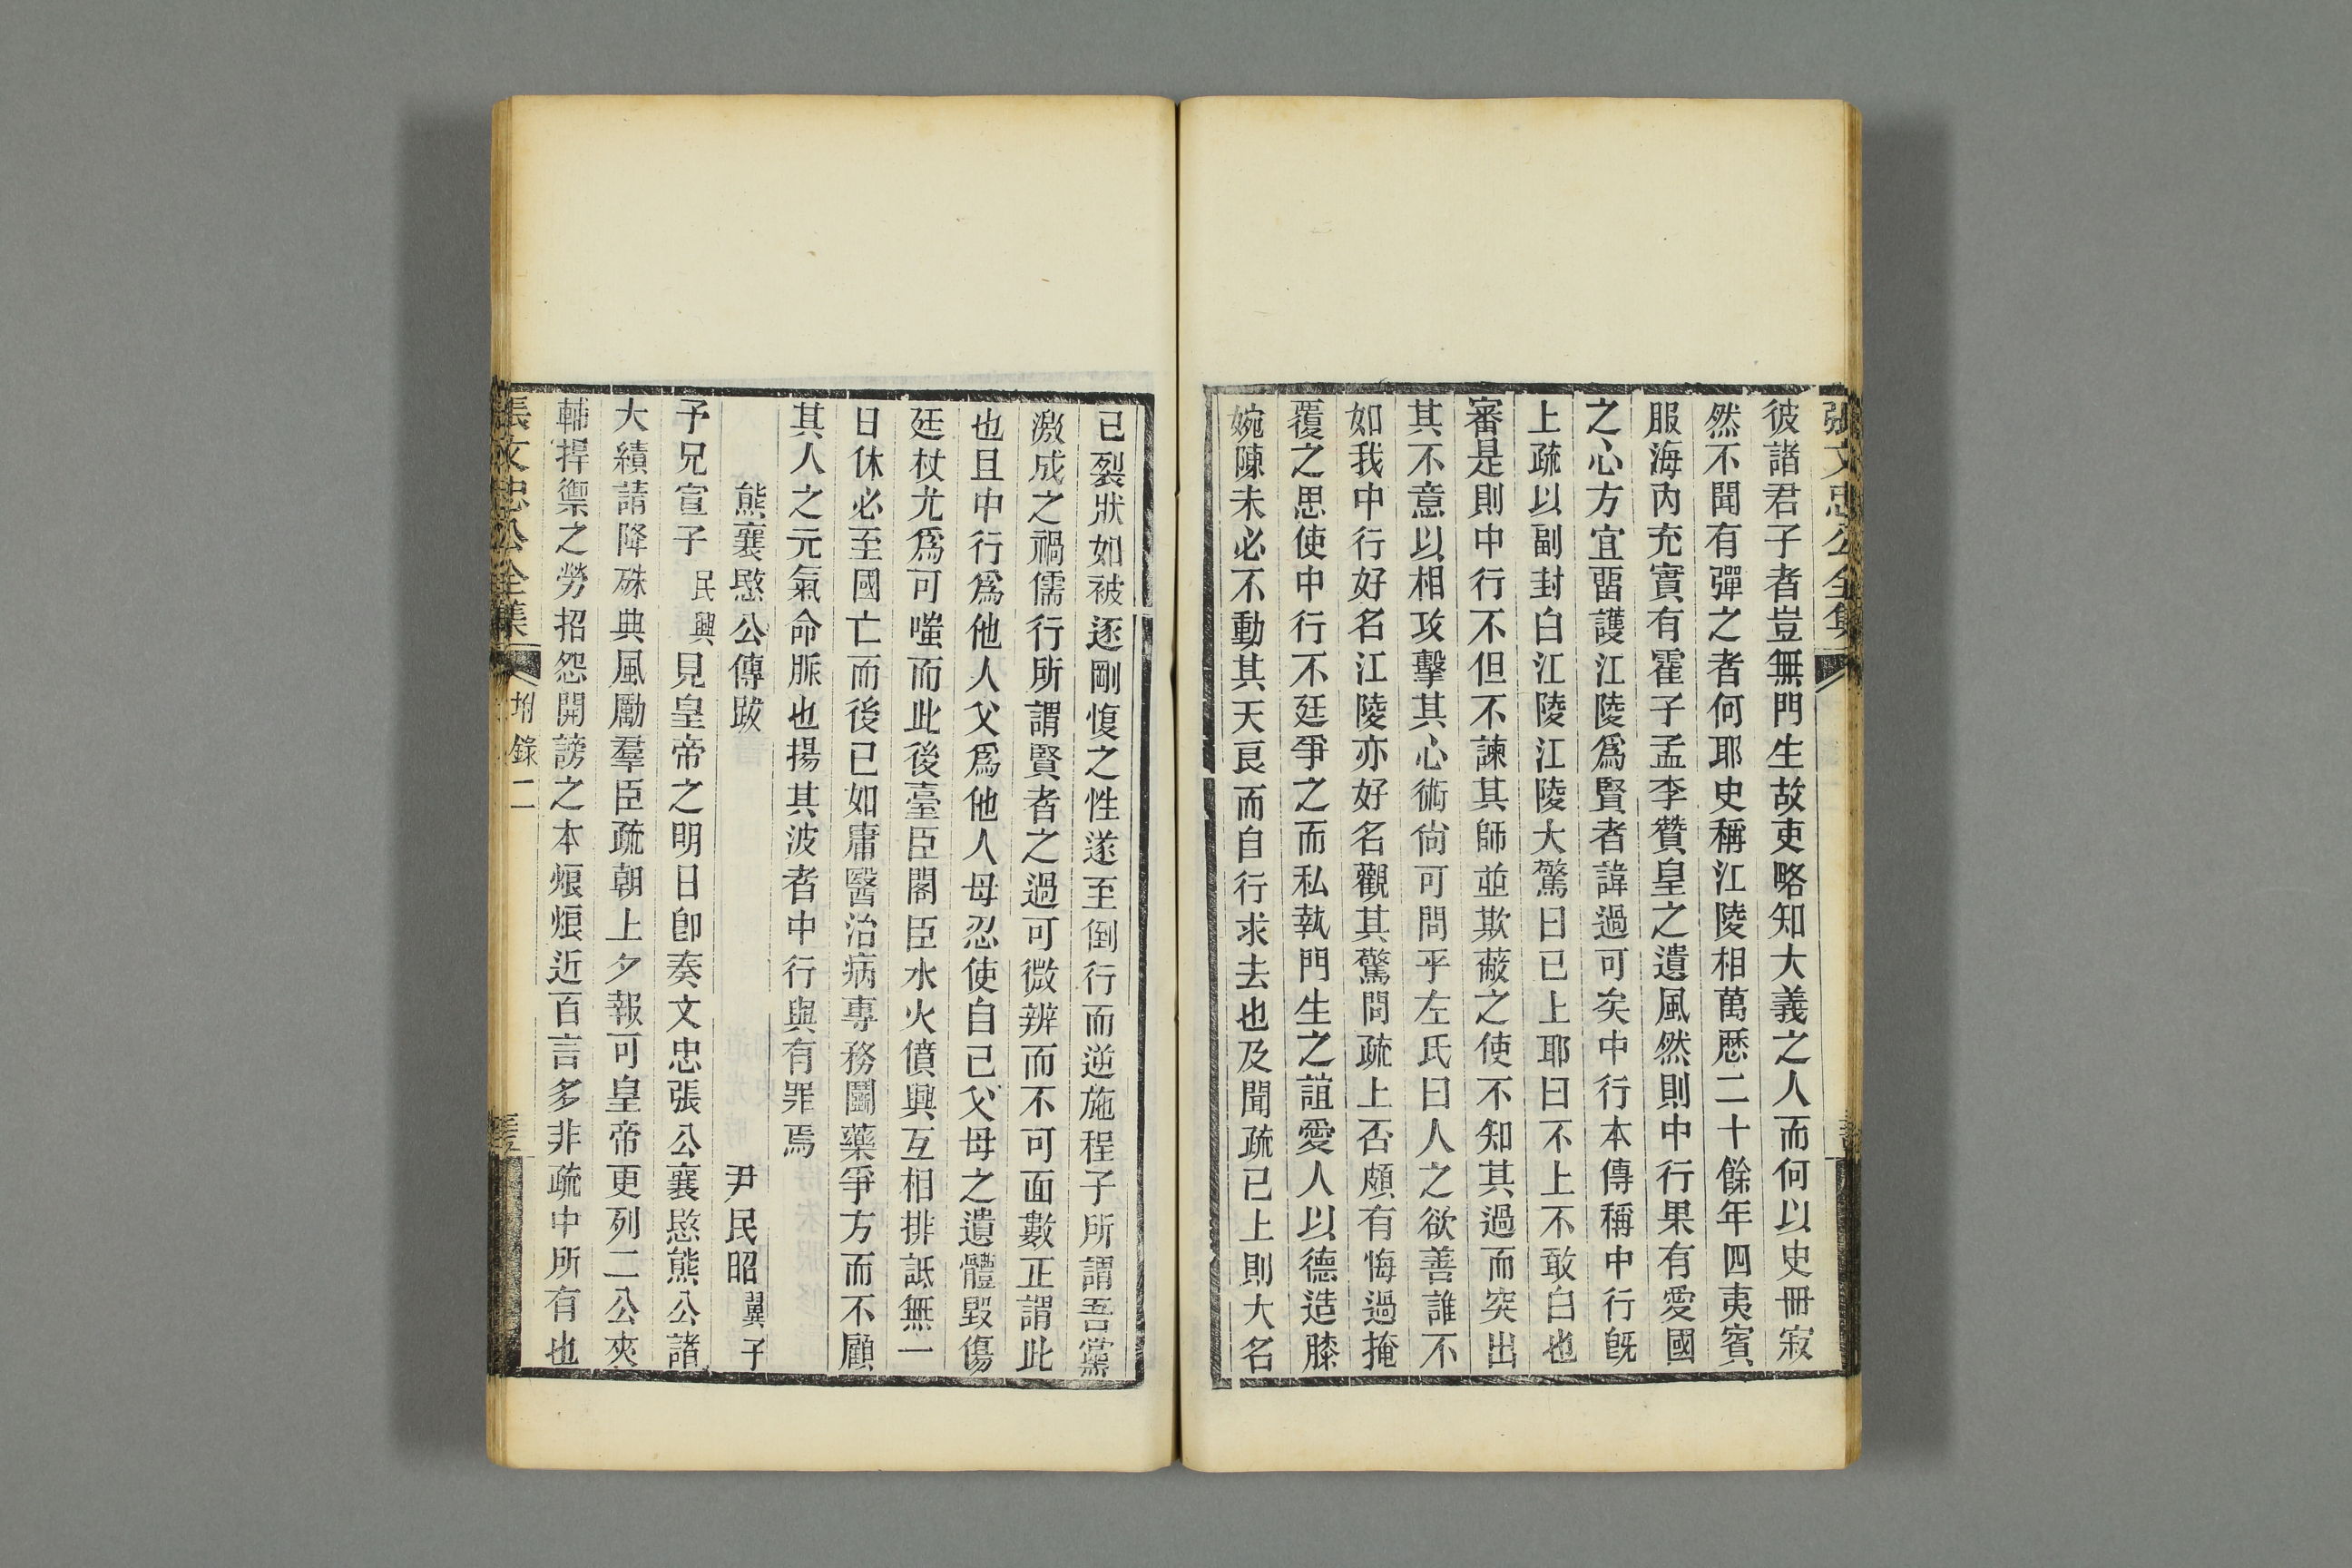 張文忠公全集
彼諸君子者豈無門生故吏略知大義之人而何以史冊寂
然不聞有彈之者何耶史稱江陵相萬厯二十餘年四夷賓
服海內充實有霍子孟李贊皇之遺風然則中行果有愛國
之心方宜畱護江陵爲賢者諱過可矣中行本傳稱中行旣
上疏以副封白江陵江陵大驚曰已上耶曰不上不敢白也
審是則中行不但不諫其師並欺蔽之使不知其過而突出
其不意以相攻擊其心術尙可問乎左氏曰人之欲善誰不
如我中行好名江陵亦好名觀其驚問疏上否頗有悔過掩
覆之思使中行不廷爭之而私執門生之誼愛人以德造膝
婉陳未必不動其天良而自行求去也及聞疏已上則大名
已裂狀如被逐剛愎之性遂至倒行而逆施程子所謂吾黨
激成之禍儒行所謂賢者之過可微辨而不可面數正謂此
也且中行爲他人父爲他人母忍使自己父母之遺體毀傷
廷杖尤爲可嗤而此後臺臣閣臣水火僨興互相排詆無一
日休必至國亡而後已如庸醫治病專務鬭藥爭方而不顧
其人之元氣命脈也揚其波者中行與有罪焉
熊襄愍公傳跋
尹民昭翼子
予兄宣子民興見皇帝之明日卽奏文忠張公襄愍熊公諸
大績請降殊典風勵羣臣疏朝上夕報可皇帝更列二公夾
輔捍禦之勞招怨開謗之本煨煨近百言多非疏中所有也
張文忠公全集
附錄二